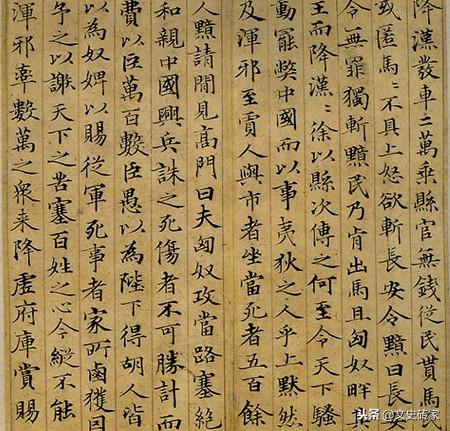 降漢發車二萬乘縣官無錢從民貰馬民
或匿馬〻不具上怒欲斬長安令黯曰長安
令無罪獨斬黯民乃肯出馬且匈奴畔其
主而降漢〻徐以縣次傳之何至令天下騷
動罷獘中國而以事夷狄之人乎上默然
及渾邪至賈人與市者坐當死者五百餘
人黯請閒見高門曰夫匈奴攻當路塞絕
和親中國興兵誅之死傷者不可勝計而
費以巨萬百數臣愚以為陛下得胡人皆
以為奴婢以賜從軍死事者家所鹵獲因
予之以謝天下之苦塞百姓之心今縱不能
渾邪率數萬之衆来降虛府庫賞賜
头条 @文史砖家